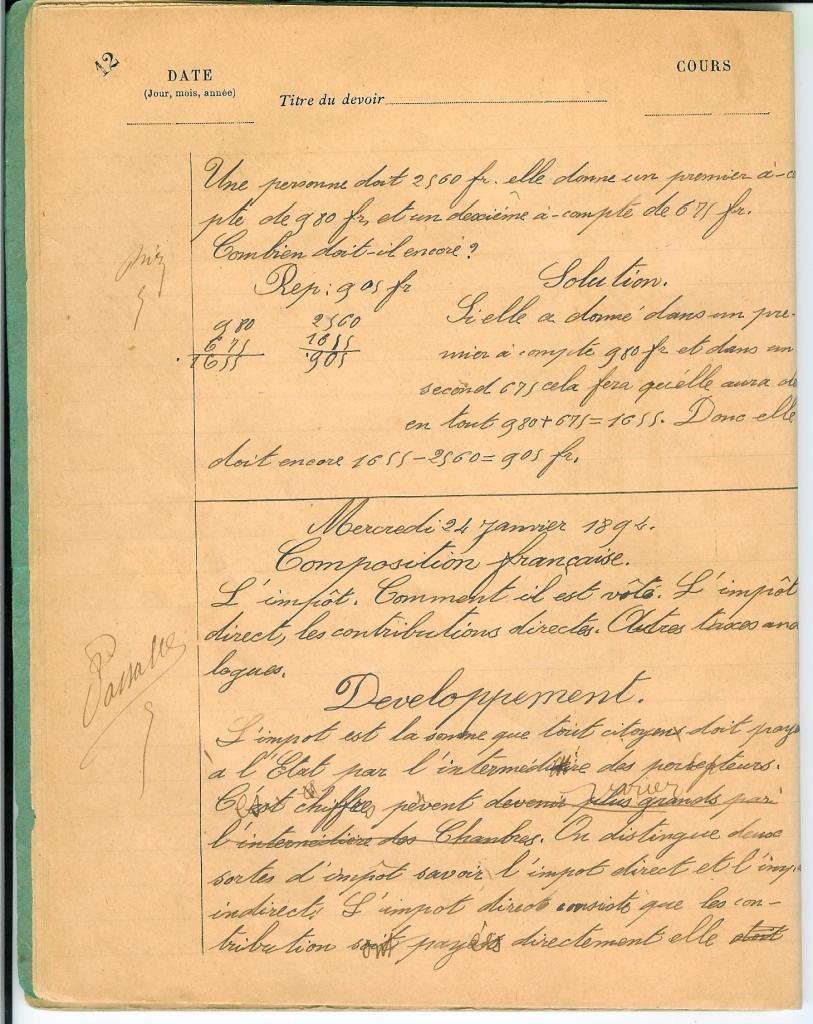 12
DATE
(Jour, mois, année)
Titre du devoir
COURS
Une personne doit 2560 fr. elle donne un premier à-c
pte de 980 fr, et un deuxième à-compte de 675 fr.
Combien doit-il encore?
Rep: 905 fr
Solution.
980 2560
675 1655
1655 905
Si elle a donné dans un pre-
mier à compte 980 fr et dans un
second 675 cela fera qu'elle aura d
en tout 980+675=1655. Donc elle
doit encore 1655-2560=905 fr.
Mercredi 24 Janvier 1894.
Composition française.
L'impôt. Comment il est voté. L'impôt
direct, les contributions directes. Autres taxes ana
logues.
Passable
5
5
Developpement.
L'impot est la somme que tout citoyens doit paye
a l'Etat par l'intermédiaire des persepteurs.
chiffres peuvent varier
devenir plus grands par
l'intermédière des Chanbres. On distingue deux
sortes d'impôt savoir l'impot direct et l'imp
indirect. L'impot direct consiste que les con-
tribution soit payées directement elle doit